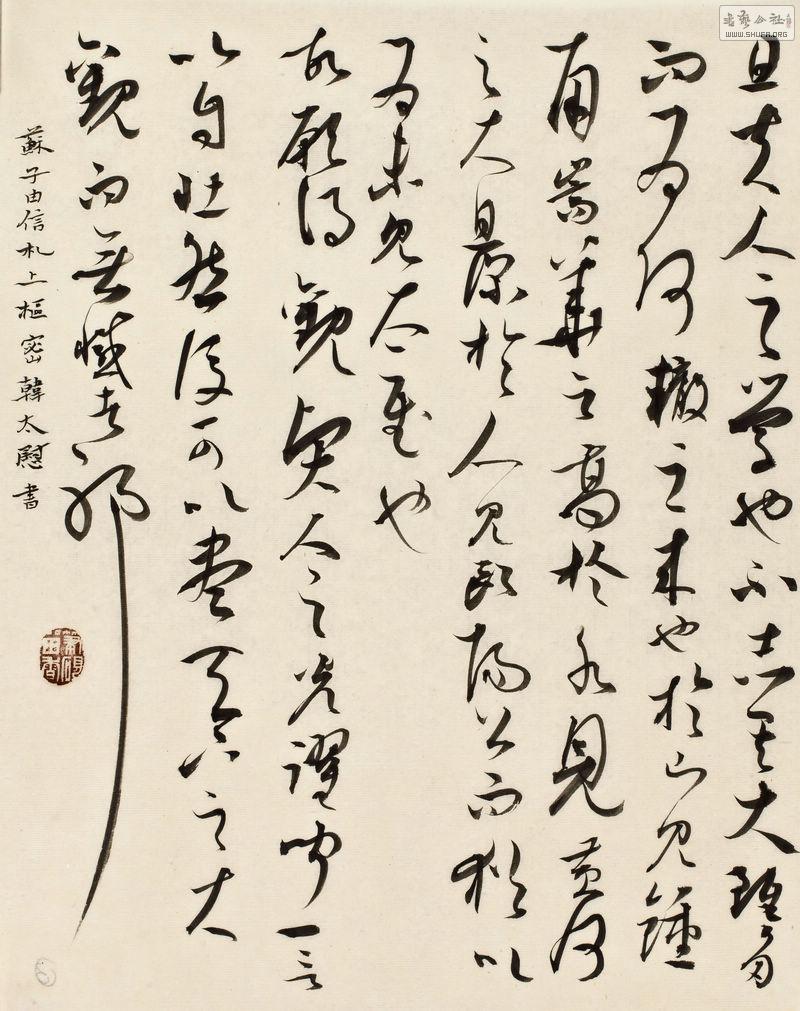 且夫人之學也不志其大雖多
而為何轍之來也於山見鍾
南嵩華之高於水見黃河
之大且深於人見歐陽公而猶以
為未見太尉也
故願得觀賢人之光耀聞一言
以自壯然後可以盡天下之大
觀而無憾者耶
蘇子由信札上樞密韓太慰書
書藝公社
WWW.SHUFA.ORG